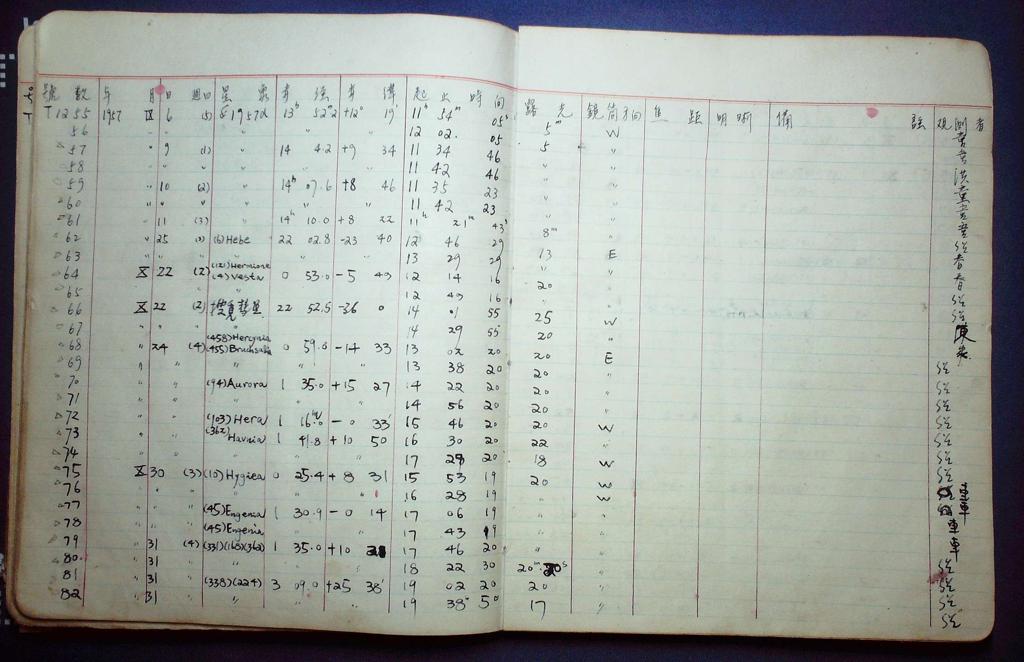 號數 年 月 日 週日 星象 赤經 赤緯 起止時間 露光 鏡筒方向 焦距 明晰 備註 觀測者
T1255 1957 Ⅸ 6 (5) 1957d 13h 52m2 +12° 19' 11h 54m 05s 5m W
56 " " " " 12 02. 05 5 "
57 " 9 (1) " 14 4.2 +9 34 11 34 46 " "
58 " " " " 11 42 46 " "
59 " 10 (2) " 14h 07.6 +8 46 11 35 23 " "
60 " " " " 11 42 23 " "
61 " 11 (3) " 14h 10.0 +8 22 11h 21m 43s 8m "
62 " 25 (6) Hebe 22 02.8 -23 40 12 46 29 13 E
63 " " " " 13 29 29 " "
64 Ⅹ 22 (2) (121) Hermione (4) Vesta 0 53.0 -5 43 12 14 16 20 "
65 " " " 12 49 16 " "
66 Ⅹ 22 (2) 搜覓彗星 22 52.5 -36 0 14 01 55 25 W
67 " " " 14 29 55 20 "
68 " 24 (4) (458) Hercynia (455) Bruchsalia 0 59.6 -14 33 13 02 20 20 E
69 " " " 13 38 20 20 "
70 " " (94) Aurora 1 35.0 +15 27 14 22 20 20 "
71 " " " 14 56 20 20 "
72 " " (103) Hera 1 16.0 -0 33' 15 46 20 20 W
73 " " (362) Havnia 1 41.8 +10 50 16 30 20 22 "
74 " " " 17 29 20 18 W
75 Ⅹ 30 (3) (10) Hygiea 0 25.4 +8 31 15 53 19 20 W
76 " " " 16 28 19 " W
77 " " (45) Eugenia 1 30.9 -0 14 17 06 19 " "
78 " " (45) Eugenia " " 17 43 19 " "
79 " 31 (4) (331)(168)(362) 1 35.0 +10 28 17 46 20 " "
80. " 31 " 18 22 30 20m 20s "
81 " 31 (338)(224) 3 09.0 +25 38' 19 02 20 20 "
82 " 31 " 19 38 50 17 "